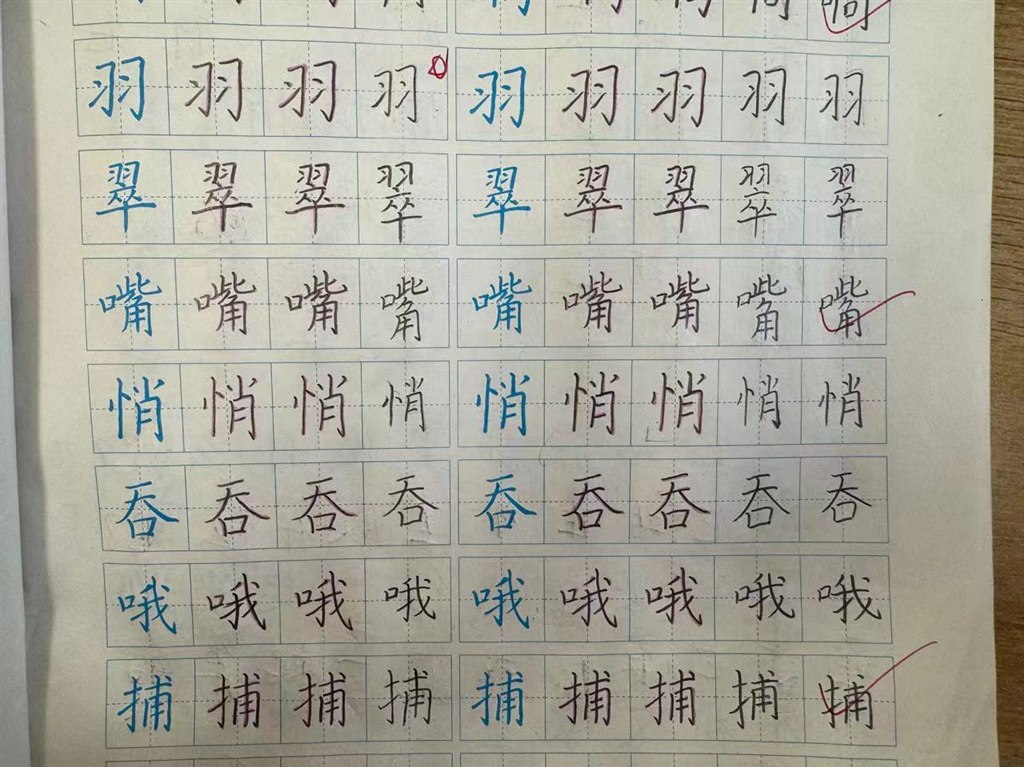 羽 羽 羽 羽 羽 羽 羽 羽 羽
翠 翠 翠 翠 翠 翠 翠 翠 翠
嘴 嘴 嘴 嘴 嘴 嘴 嘴 嘴 嘴
悄 悄 悄 悄 悄 悄 悄 悄 悄
吞 吞 吞 吞 吞 吞 吞 吞 吞
哦 哦 哦 哦 哦 哦 哦 哦 哦
捕 捕 捕 捕 捕 捕 捕 捕 捕